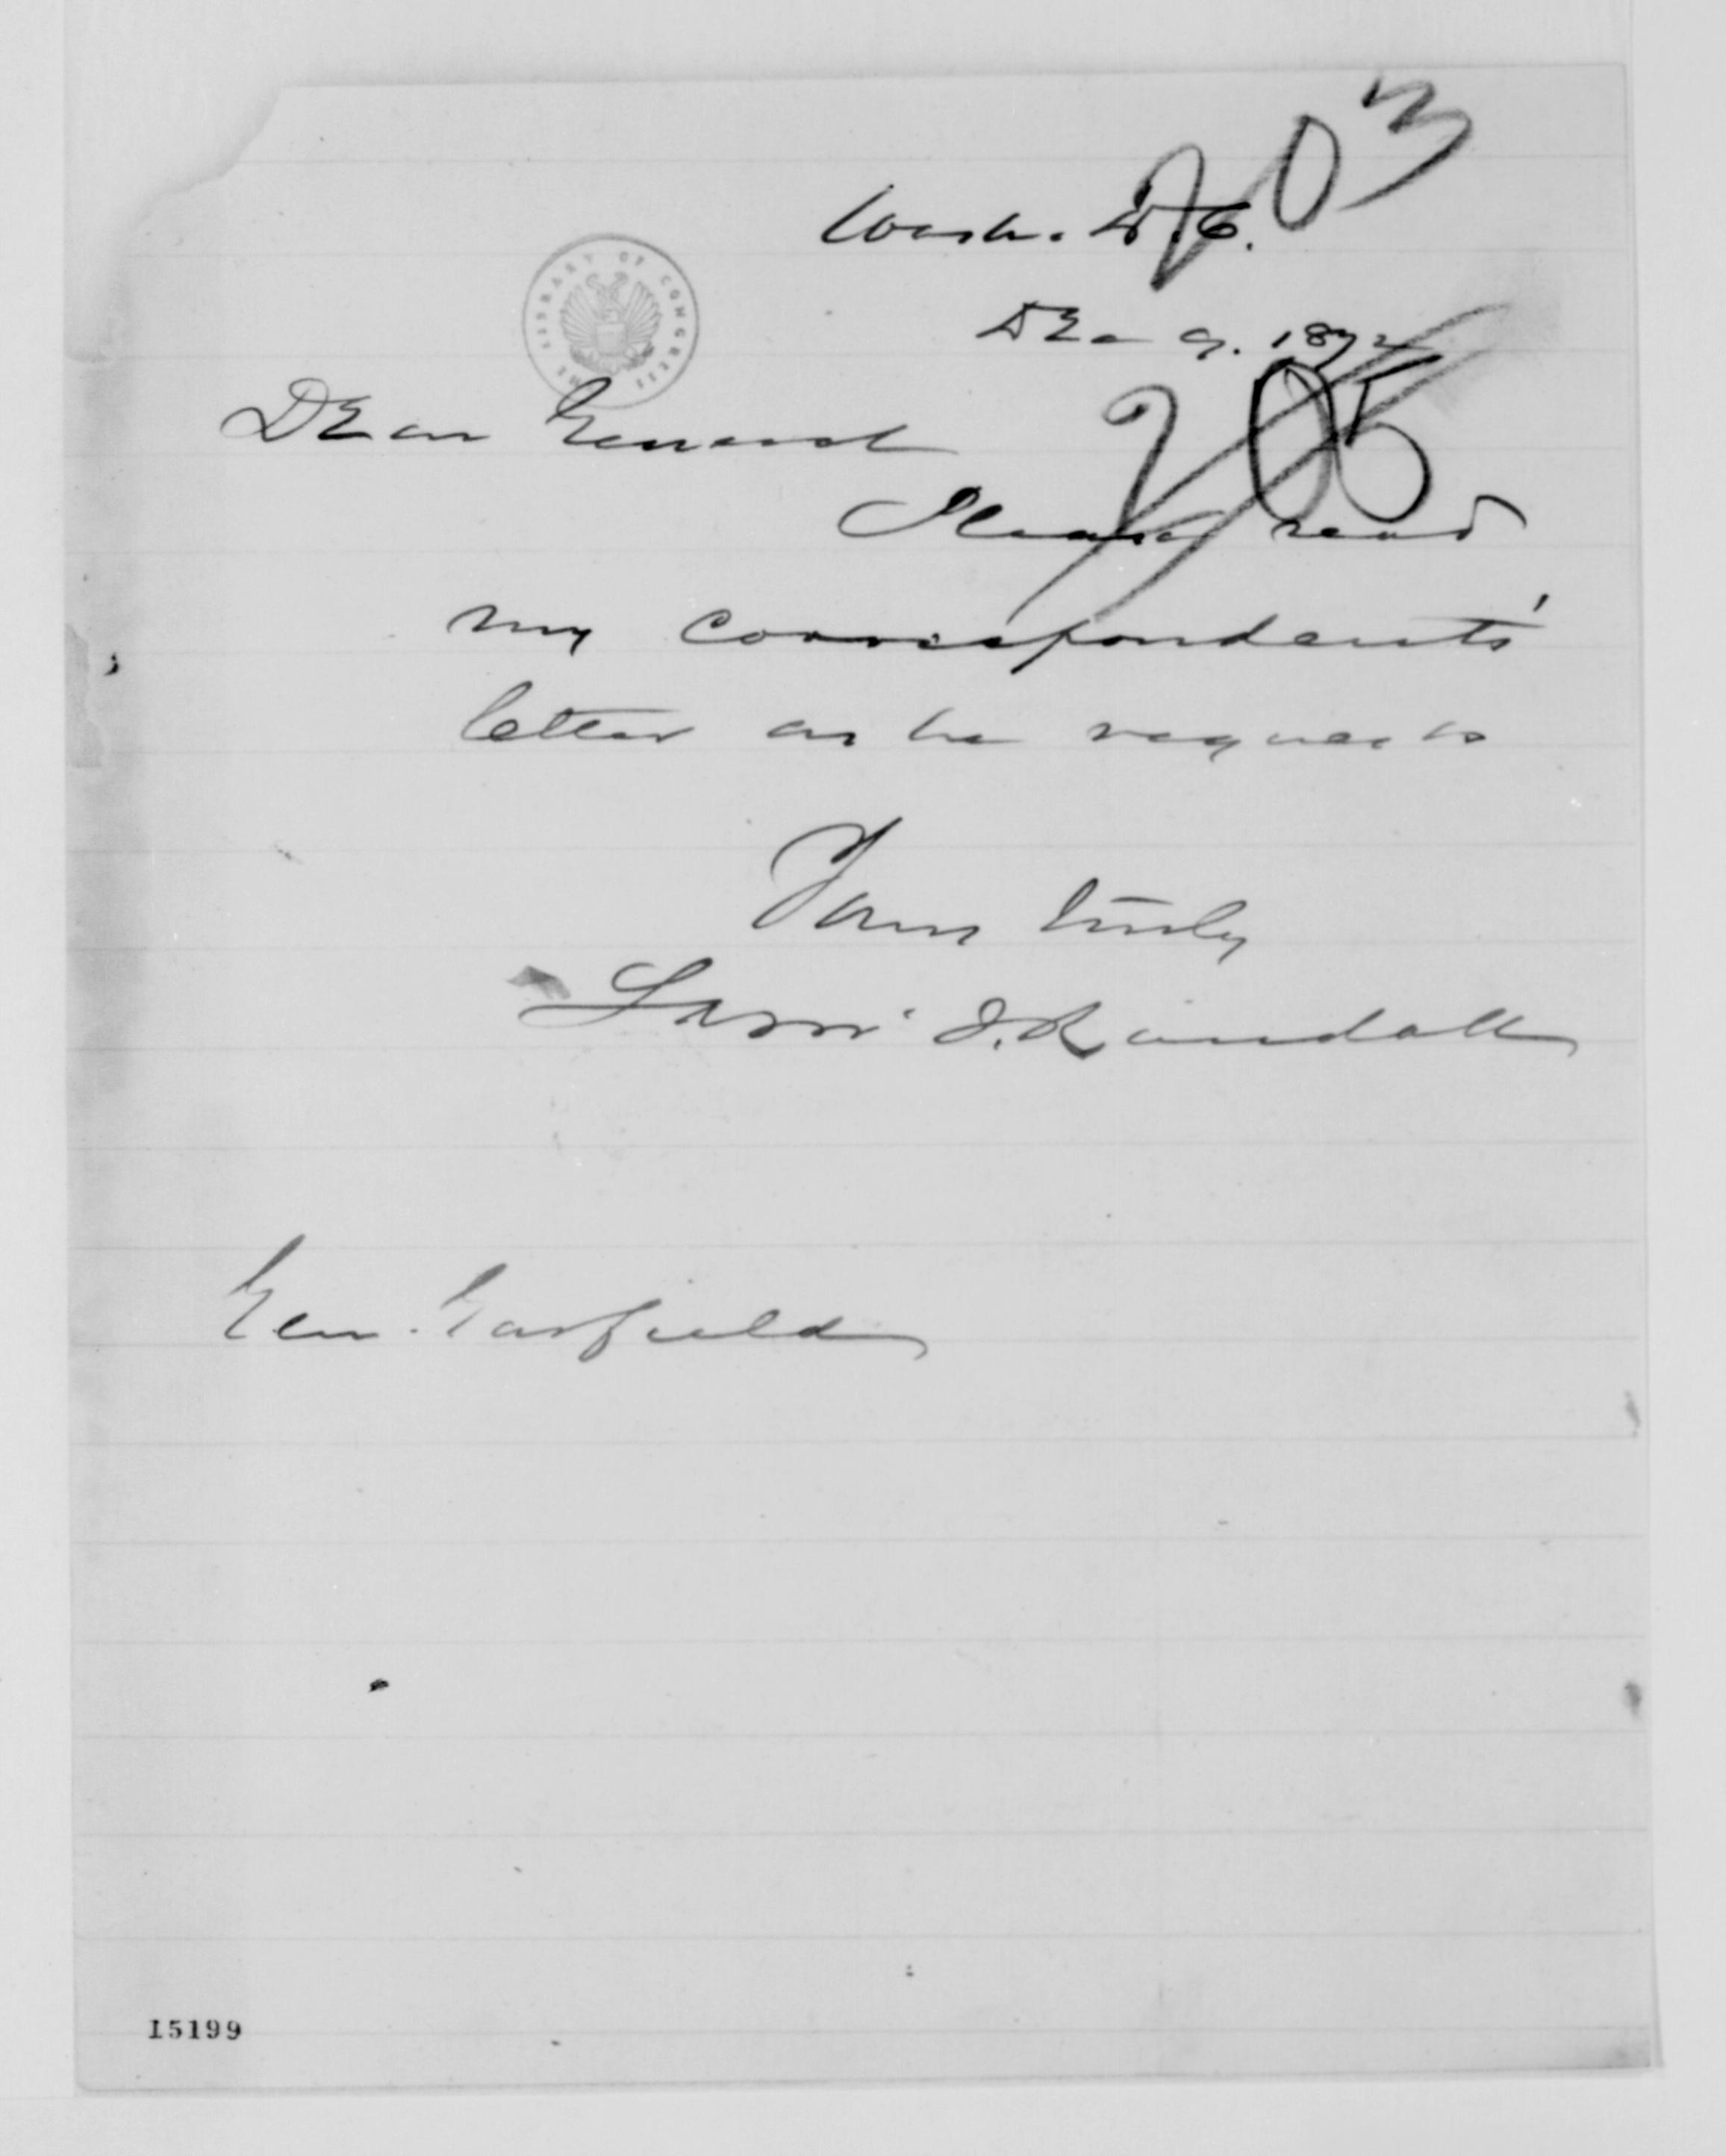 203
Wash. D.C.
Dec 9. 1872
THE LIBRARY OF CONGRESS
205
Dear General
Please read
my correspondent's
letter as he requests
Yours truly
Saml J. Randall
Gen. Garfield
15199